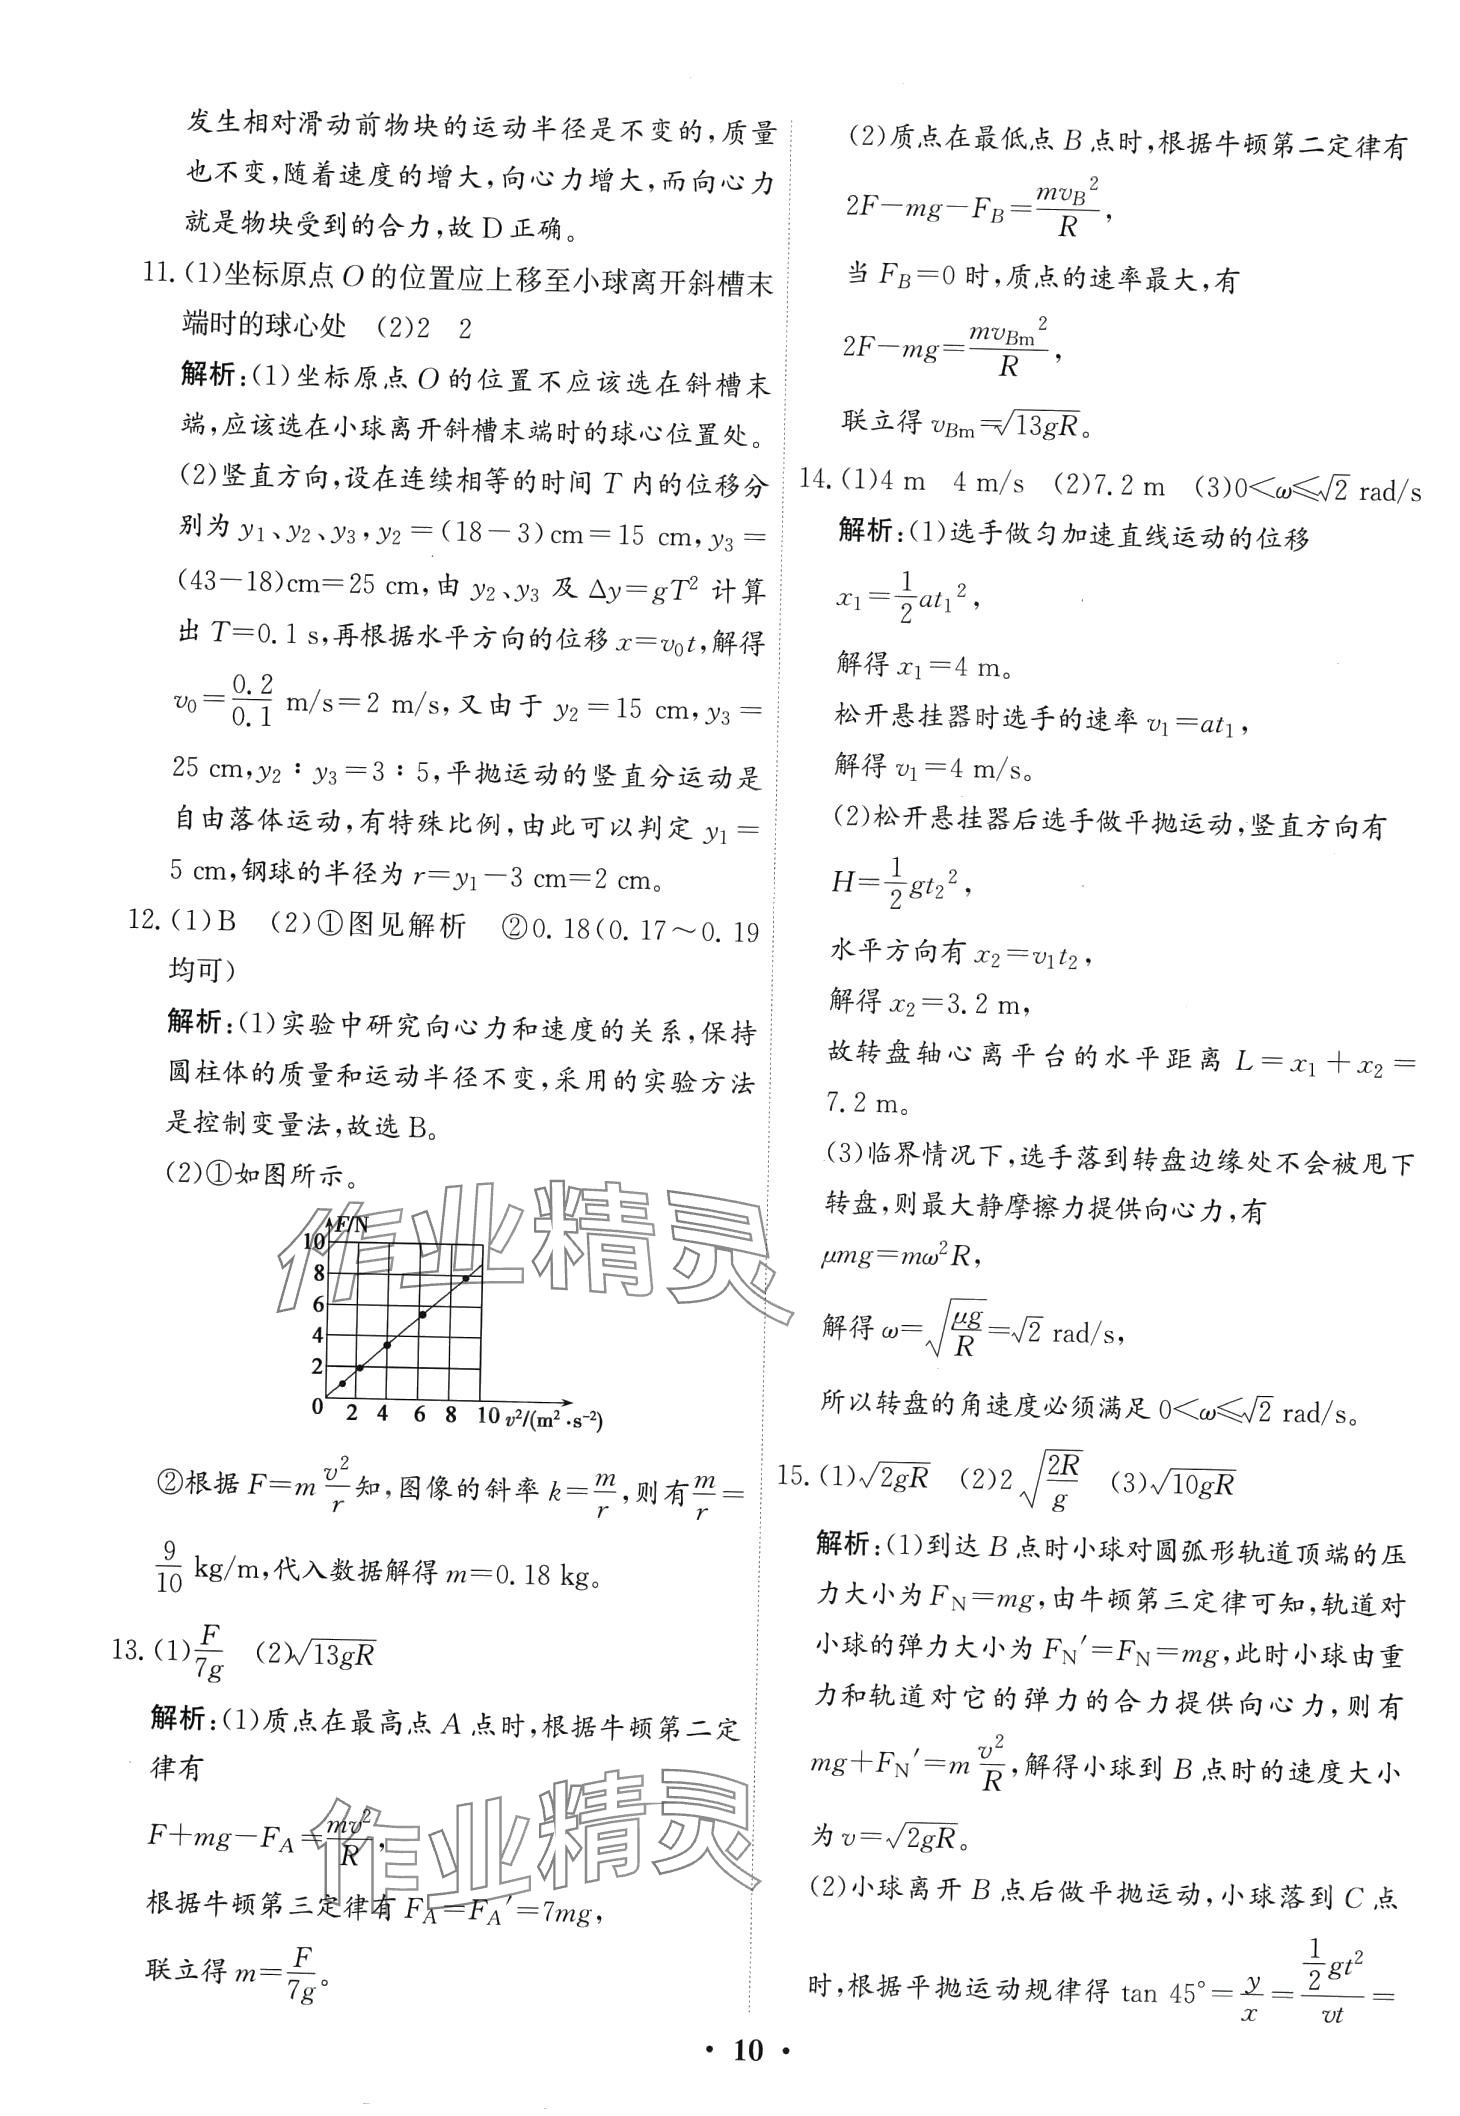 发生相对滑动前物块的运动半径是不变的,质量
也不变,随着速度的增大,向心力增大,而向心力
就是物块受到的合力,故 D 正确。
11. (1)坐标原点 O 的位置应上移至小球离开斜槽末
端时的球心处 (2)2 2
解析:(1)坐标原点 O 的位置不应该选在斜槽末
端,应该选在小球离开斜槽末端时的球心位置处。
(2)竖直方向,设在连续相等的时间 T 内的位移分
别为 y₁、y₂、y₃,y₂=(18-3)cm=15 cm,y₃=
(43-18)cm=25 cm,由 y₂、y₃ 及 Δy=gT² 计算
出 T=0.1 s,再根据水平方向的位移 x=v₀t,解得
v₀=0.2/0.1 m/s=2 m/s,又由于 y₂=15 cm,y₃=
25 cm,y₂:y₃=3:5,平抛运动的竖直分运动是
自由落体运动,有特殊比例,由此可以判定 y₁=
5 cm,钢球的半径为 r=y₁-3 cm=2 cm。
12. (1)B (2)①图见解析 ②0.18(0.17~0.19
均可)
解析:(1)实验中研究向心力和速度的关系,保持
圆柱体的质量和运动半径不变,采用的实验方法
是控制变量法,故选 B。
(2)①如图所示。
F/N
10
8
6
4
2
0 2 4 6 8 10 v²/(m²·s⁻²)
②根据 F=m v²/r 知,图像的斜率 k=m/r,则有 m/r=
9/10 kg/m,代入数据解得 m=0.18 kg。
13. (1)F/7g (2)√13gR
解析:(1)质点在最高点 A 点时,根据牛顿第二定
律有
F+mg-F_A=mv²/R,
根据牛顿第三定律有 F_A=F_A′=7mg,
联立得 m=F/7g。
(2)质点在最低点 B 点时,根据牛顿第二定律有
2F-mg-F_B=mv_B²/R,
当 F_B=0 时,质点的速率最大,有
2F-mg=mv_Bm²/R,
联立得 v_Bm=√13gR。
14. (1)4 m 4 m/s (2)7.2 m (3)0<ω≤√2 rad/s
解析:(1)选手做匀加速直线运动的位移
x₁=1/2 at₁²,
解得 x₁=4 m。
松开悬挂器时选手的速率 v₁=at₁,
解得 v₁=4 m/s。
(2)松开悬挂器后选手做平抛运动,竖直方向有
H=1/2 gt₂²,
水平方向有 x₂=v₁t₂,
解得 x₂=3.2 m,
故转盘轴心离平台的水平距离 L=x₁+x₂=
7.2 m。
(3)临界情况下,选手落到转盘边缘处不会被甩下
转盘,则最大静摩擦力提供向心力,有
μmg=mω²R,
解得 ω=√(μg/R)=√2 rad/s,
所以转盘的角速度必须满足 0<ω≤√2 rad/s。
15. (1)√2gR (2)2√(2R/g) (3)√10gR
解析:(1)到达 B 点时小球对圆弧形轨道顶端的压
力大小为 F_N=mg,由牛顿第三定律可知,轨道对
小球的弹力大小为 F_N′=F_N=mg,此时小球由重
力和轨道对它的弹力的合力提供向心力,则有
mg+F_N′=m v²/R,解得小球到 B 点时的速度大小
为 v=√2gR。
(2)小球离开 B 点后做平抛运动,小球落到 C 点
时,根据平抛运动规律得 tan 45°=y/x=(1/2 gt²)/vt=
作业精灵
作业精灵
• 10 •